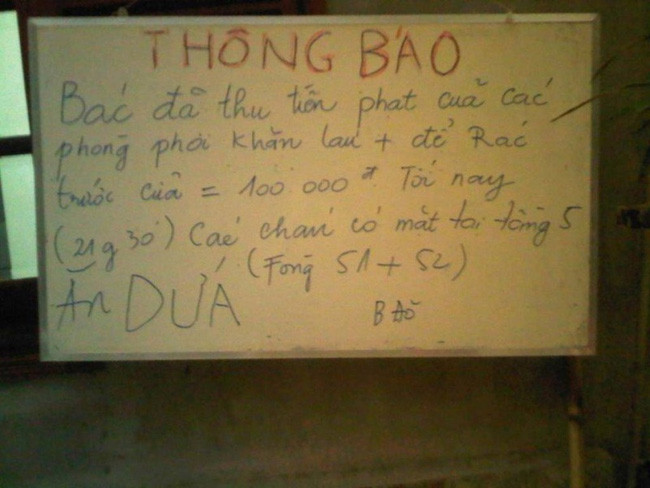 THÔNG BÁO
Bác đã thu tiền phạt của các
phòng phơi khăn lau + để Rác
trước cửa = 100 000đ Tối nay
(21g30') Các cháu có mặt tại tầng 5
(Fòng 51 + 52)
Ăn DỨA
BẢO